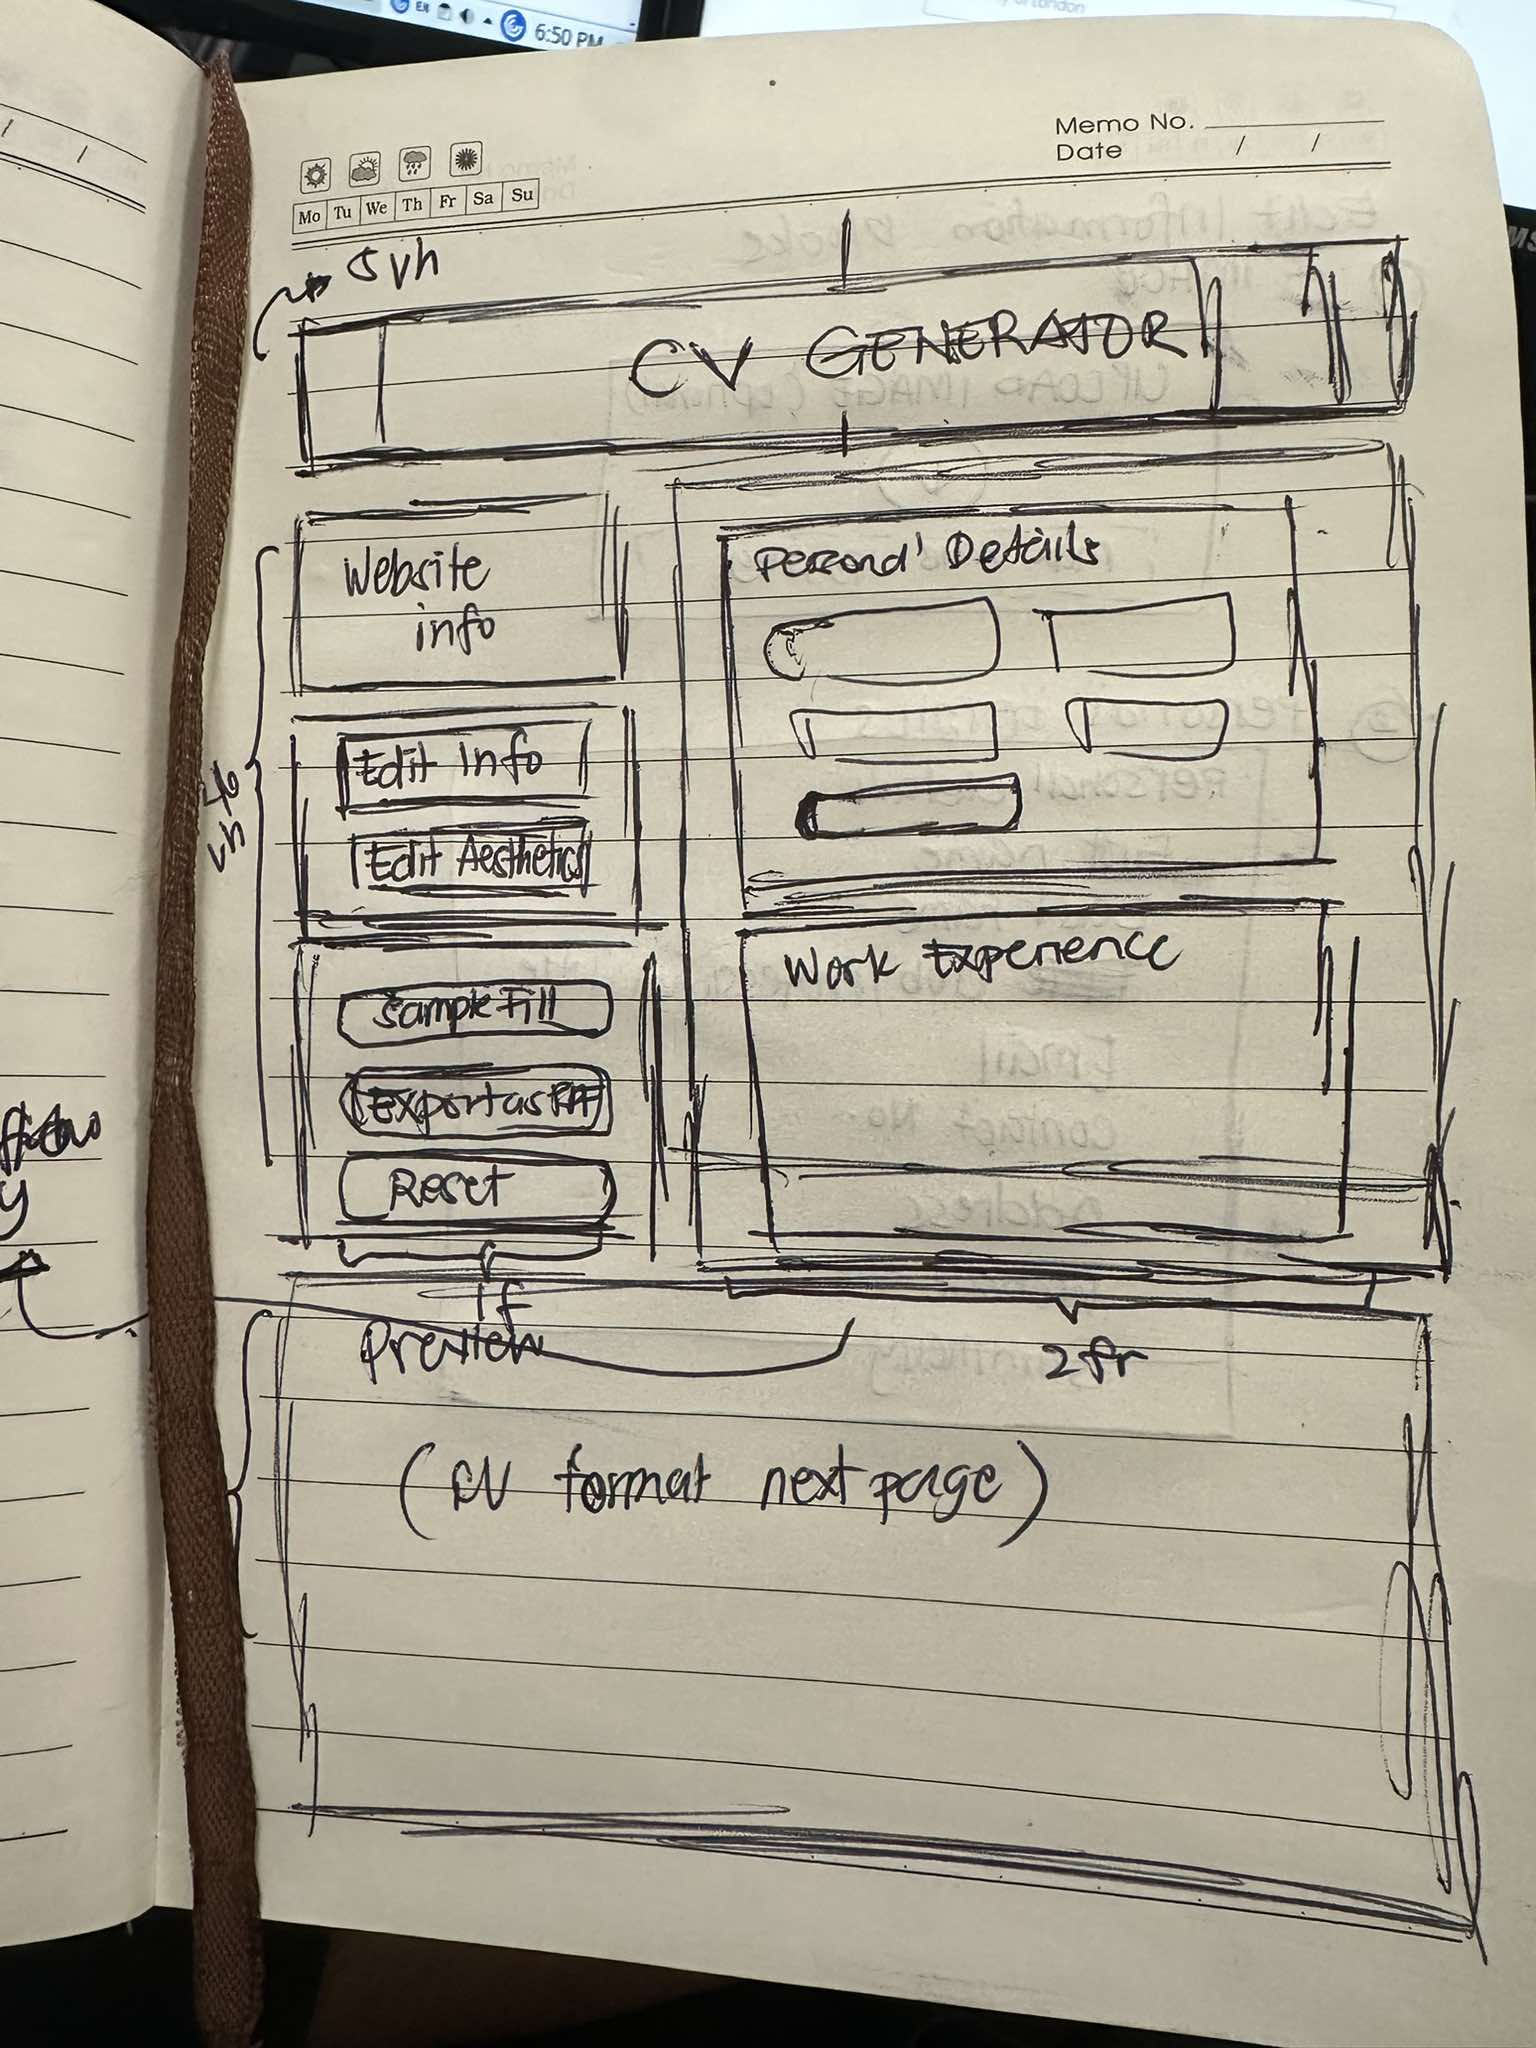 6:50 PM
Memo No.
Date / /
Mo Tu We Th Fr Sa Su
5vh
CV GENERATOR
Website
info
Personal Details
Edit Info
Edit Aesthetics
vh
Sample Fill
Export as PDF
Reset
Work Experience
1f
2fr
Preview
(CV format next page)